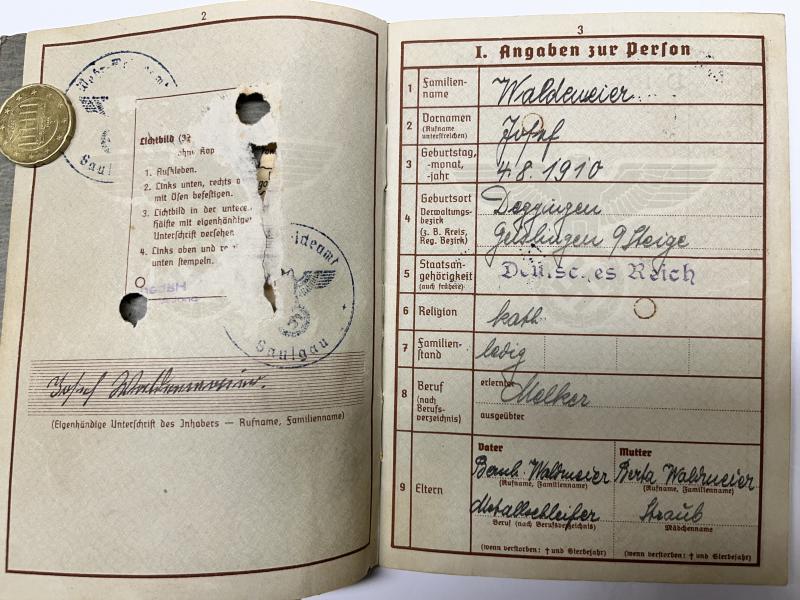 2
Saulgau
Lichtbild
1. Aufkleben.
2. Links unten, rechts o
mit Ösen befestigen.
3. Lichtbild in der untere
Hälfte mit eigenhändiger
Unterschrift versehen.
4. Links oben und re
unten stempeln.
Saulgau
Josef Waldenmeier.
(Eigenhändige Unterschrift des Inhabers — Rufname, Familienname)
3
I. Angaben zur Person
1 Familien-
name
Waldemeier
2 Vornamen
(Rufname
unterstreichen)
Josef
3 Geburtstag,
-monat,
-jahr
4.8.1910
4 Geburtsort
Verwaltungs-
bezirk
(z. B. Kreis,
Reg. Bezirk)
Deggingen
Geislingen a/Steige
5 Staatsan-
gehörigkeit
(auch frühere)
Deutsc es Reich
6 Religion
kath.
7 Familien-
stand
ledig
8 Beruf
(nach
Berufs-
verzeichnis)
erlernter
Melker
ausgeübter
9 Eltern
Vater
Bernh. Waldmeier
(Rufname, Familienname)
Metallschleifer
Beruf (nach Berufsverzeichnis)
(wenn verstorben: † und Sterbejahr)
Mutter
Berta Waldmeier
(Rufname, Familienname)
Straub
Mädchenname
(wenn verstorben: † und Sterbejahr)